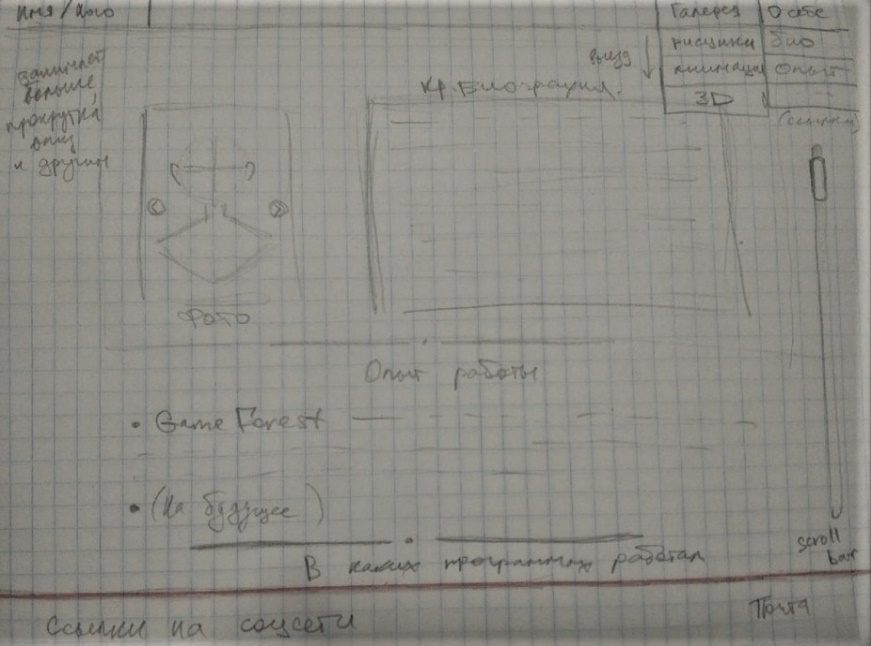 Имя / Лого
Галерея
О себе
рисунки
био
анимация
Опыт
3D
(ссылки)
занимает
больше,
прокрутка
вниз
к другим
Кр. Биография.
Фото
Опыт работы
• Game Forest
• (На будущее)
В каких программах работал
scroll
bar
Ссылки на соцсети
Почта